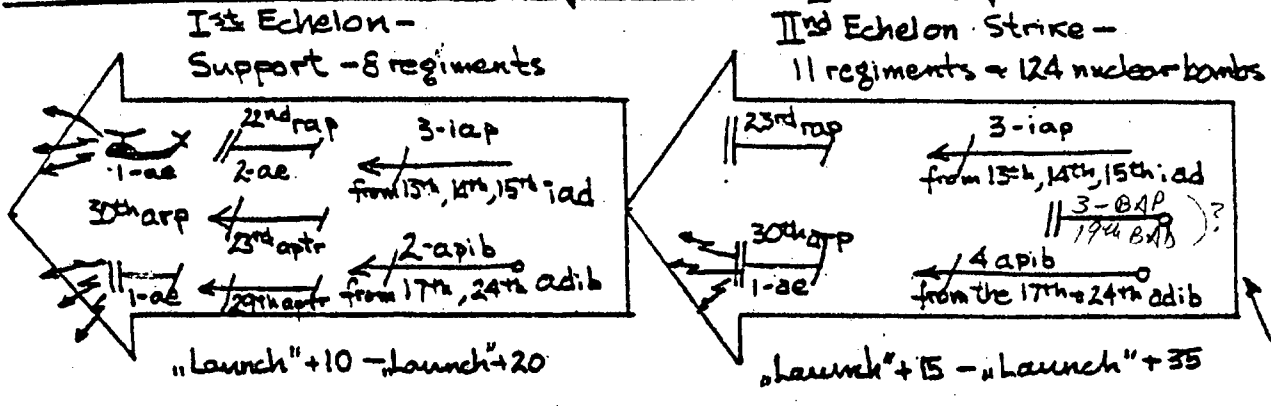 Ist Echelon –
Support – 8 regiments
22nd rap
2-ae
3-iap
from 13th, 14th, 15th iad
1-ae
30th arp
23rd aptr
2-apib
from 17th, 24th adib
1-ae
29th aptr
„Launch" +10 – „Launch" +20
IInd Echelon Strike –
11 regiments – 124 nuclear bombs
23rd rap
3-iap
from 13th, 14th, 15th iad
3-BAP
19th BAD ) ?
30th arp
1-ae
4 apib
from the 17th + 24th adib
„Launch" + 15 – „Launch" + 35